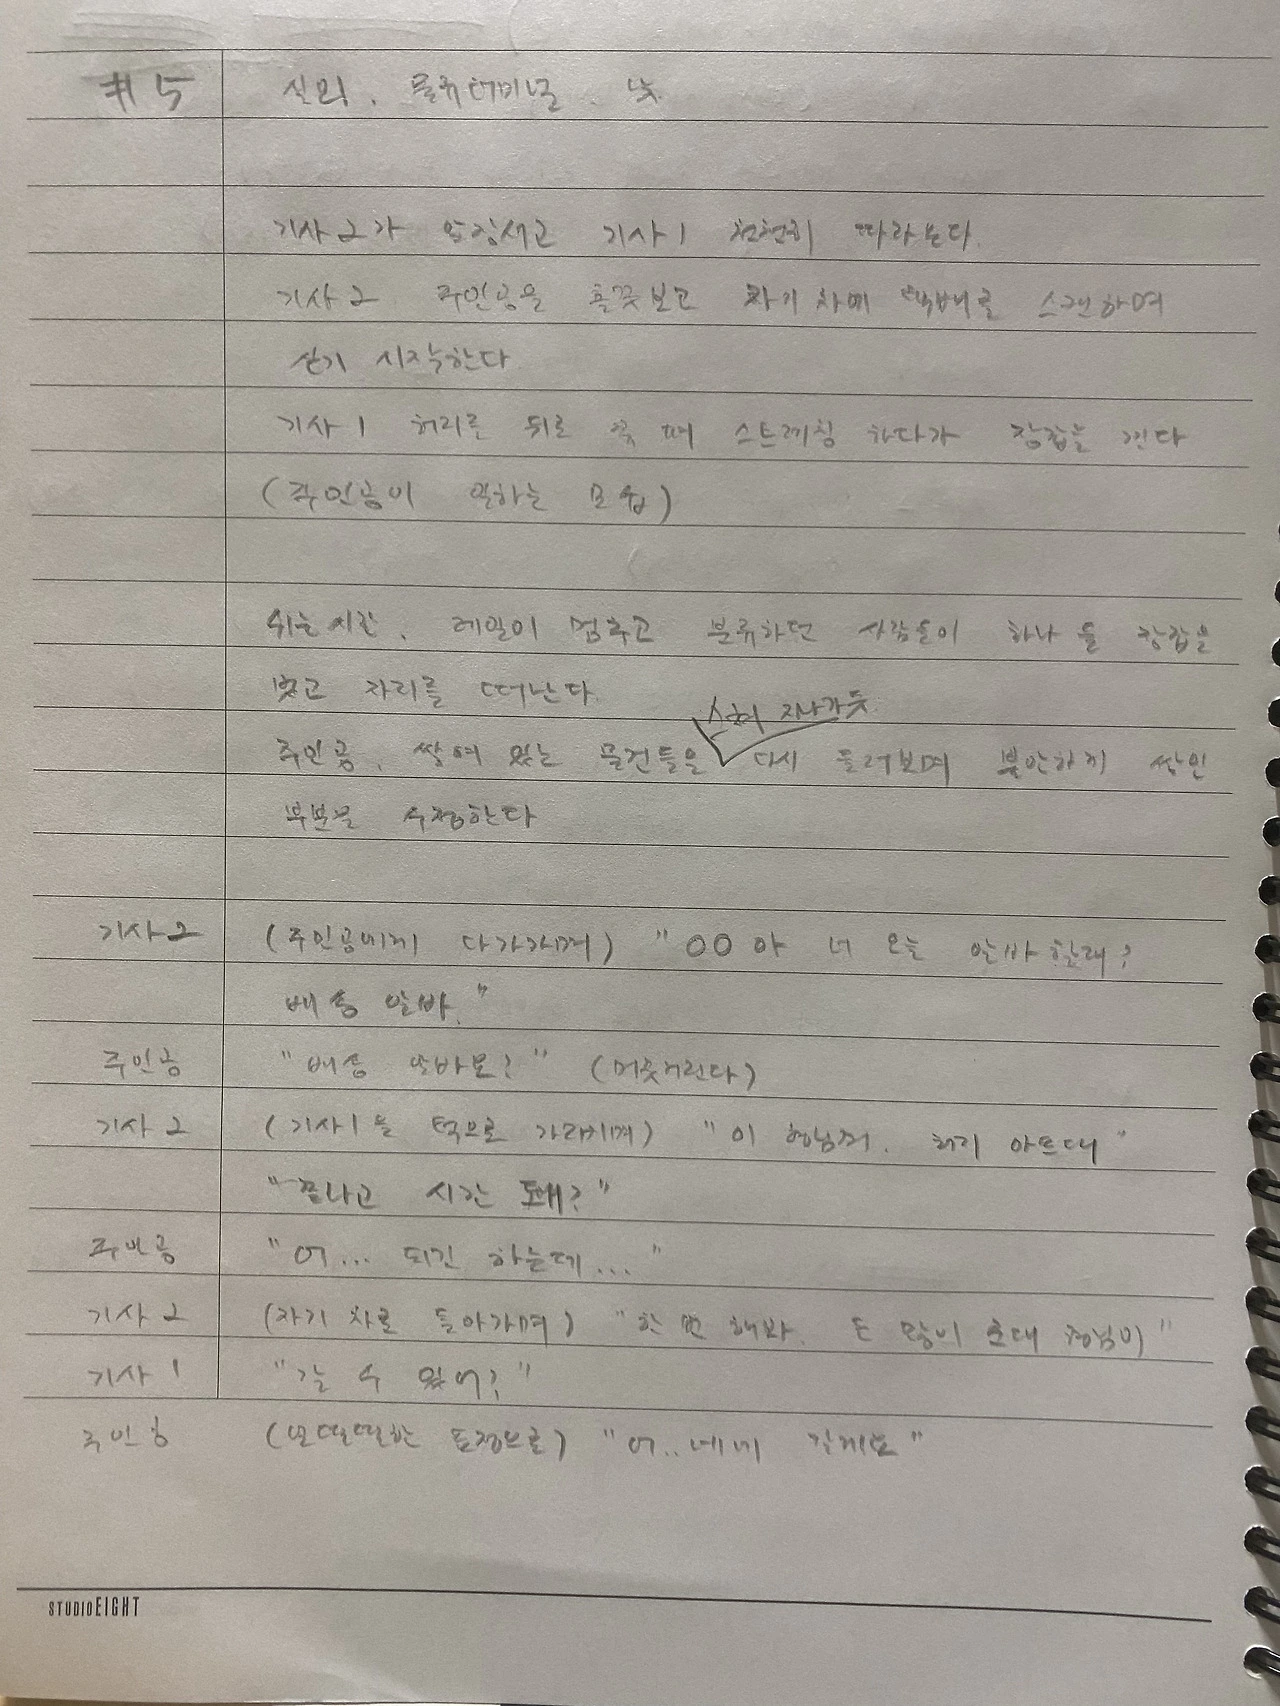 #5 실외. 물류터미널. 낮.
기사2가 앞장서고 기사1 천천히 따라온다.
기사2 주인공을 흘끗보고 자기 차에 택배를 스캔하며
싣기 시작한다
기사1 허리를 뒤로 스트레칭 하다가 장갑을 낀다
(주인공이 일하는 모습)
쉬는시간. 레일이 멈추고 분류하던 사람들이 하나 둘 장갑을
벗고 자리를 떠난다.
스쳐 지나가듯
주인공. 쌓여 있는 물건들을 다시 둘러보며 불안하게 쌓인
부분을 수정한다
기사2 (주인공에게 다가가며) "OO아 너 오늘 알바할래?
배송 알바."
주인공 "배송 알바요?" (머뭇거린다)
기사2 (기사1을 턱으로 가리키며) "이 형님꺼. 허리 아프대"
"끝나고 시간 돼?"
주인공 "어... 되긴 하는데..."
기사2 (자기 차로 돌아가며) "한 번 해봐. 돈 많이 준대 형님이"
기사1 "갈 수 있어?"
주인공 (떨떠름한 표정으로) "어..네네 갈게요"
STUDIO EIGHT